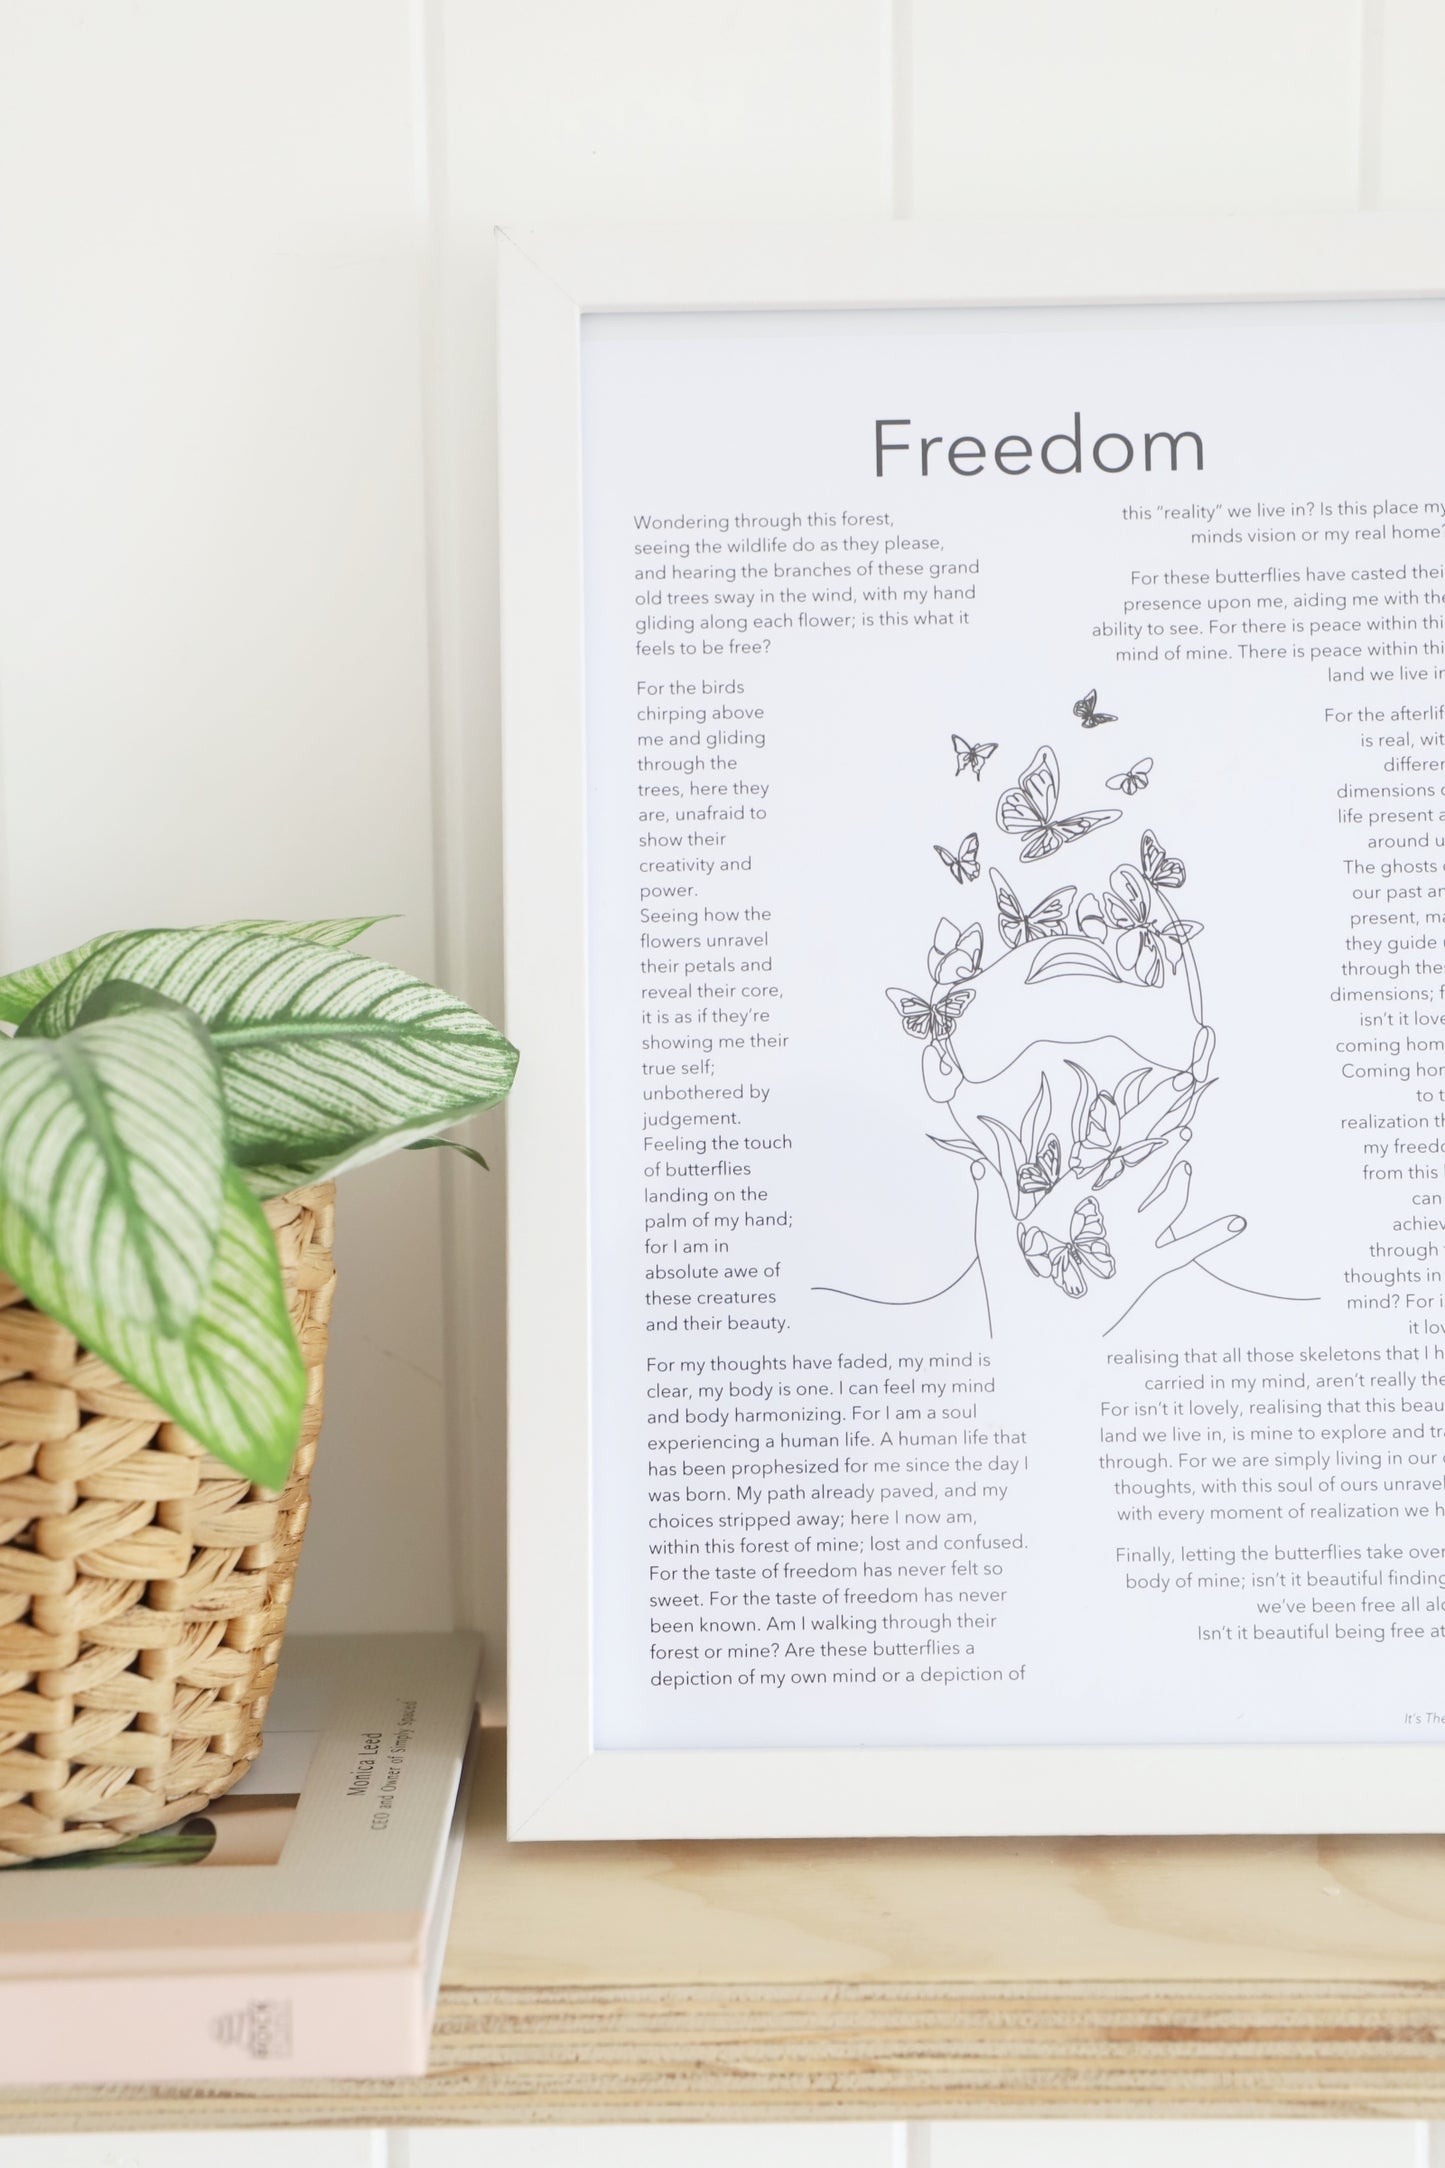 Freedom
Wondering through this forest,
seeing the wildlife do as they please,
and hearing the branches of these grand
old trees sway in the wind, with my hand
gliding along each flower; is this what it
feels to be free?
For the birds
chirping above
me and gliding
through the
trees, here they
are, unafraid to
show their
creativity and
power.
Seeing how the
flowers unravel
their petals and
reveal their core,
it is as if they're
showing me their
true self;
unbothered by
judgement.
Feeling the touch
of butterflies
landing on the
palm of my hand;
for I am in
absolute awe of
these creatures
and their beauty.
For my thoughts have faded, my mind is
clear, my body is one. I can feel my mind
and body harmonizing. For I am a soul
experiencing a human life. A human life that
has been prophesized for me since the day I
was born. My path already paved, and my
choices stripped away; here I now am,
within this forest of mine; lost and confused.
For the taste of freedom has never felt so
sweet. For the taste of freedom has never
been known. Am I walking through their
forest or mine? Are these butterflies a
depiction of my own mind or a depiction of
this “reality” we live in? Is this place my
minds vision or my real home?
For these butterflies have casted
presence upon me, aiding me with the
ability to see. For there is peace within
mind of mine. There is peace within
land we live
For the
is real,
dimensions
life present
around
The ghosts
our past
present,
they guide
through
dimensions;
isn't it
coming
Coming
to
realization
my
from this
can
through
thoughts in
mind? For
it
realising that all those skeletons that I
carried in my mind, aren't really
For isn't it lovely, realising that this
land we live in, is mine to explore and
through. For we are simply living in our
thoughts, with this soul of ours
with every moment of realization we
Finally, letting the butterflies take over
body of mine; isn't it beautiful finding
we've been free all
Isn't it beautiful being free
It's
Monica Leed
CEO and Owner of Simply Spaced